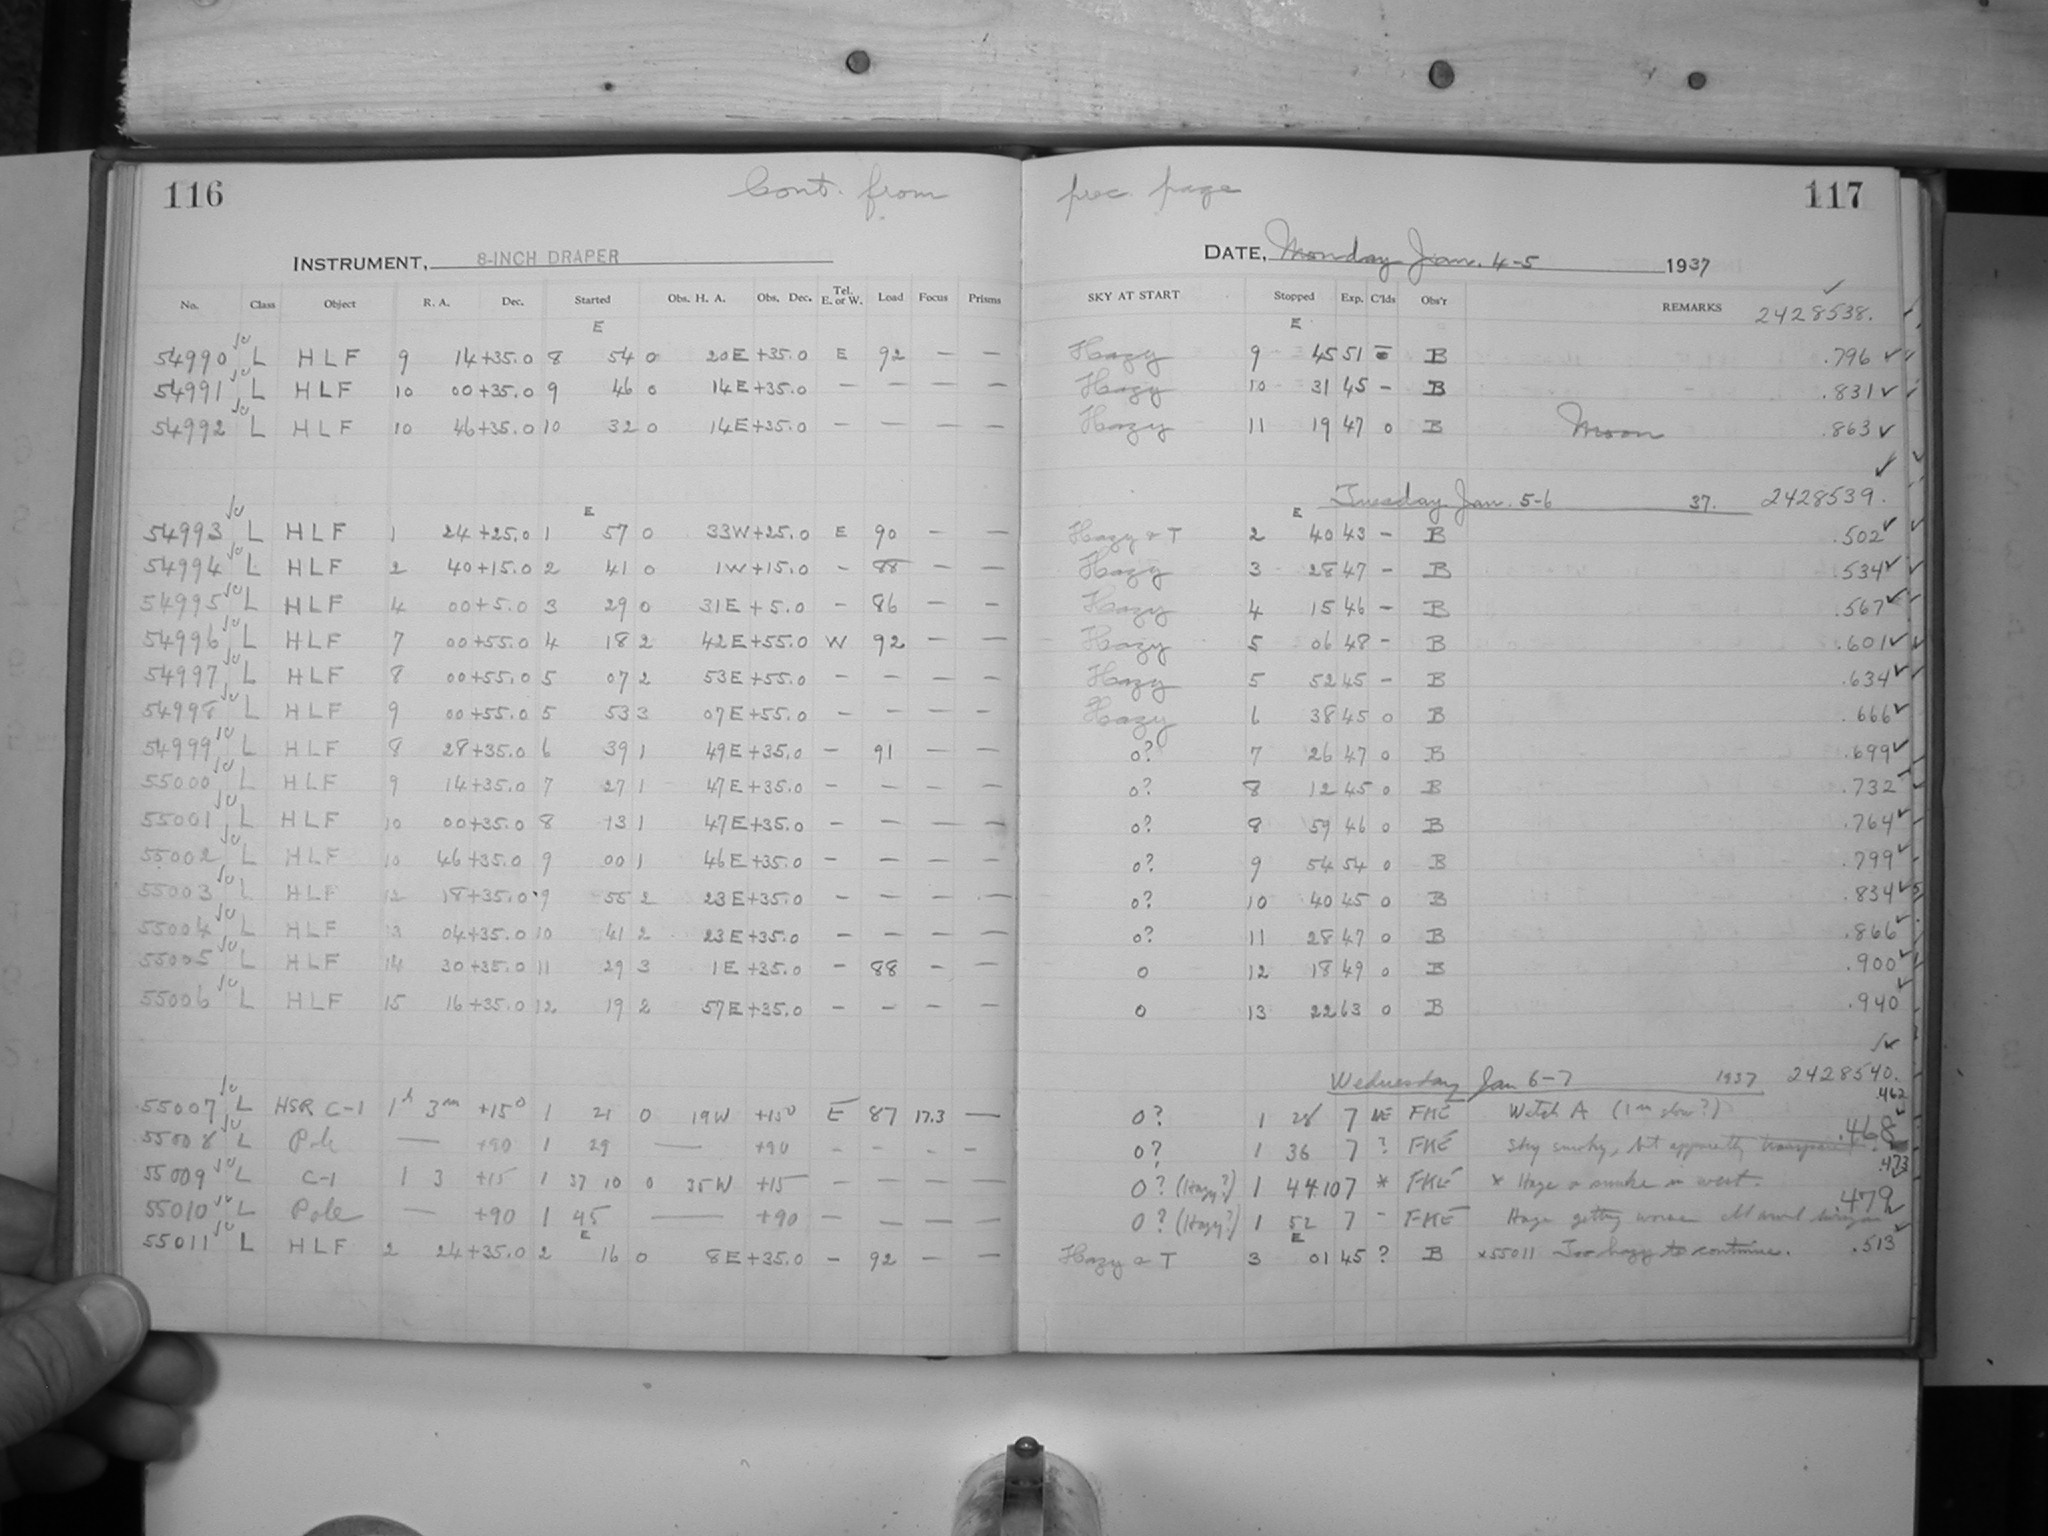 116 Cont. from prec. page 117
INSTRUMENT, 8-INCH DRAPER DATE, Monday Jan. 4-5 1937
No. Class Object R. A. Dec. Started Obs. H. A. Obs. Dec. Tel. E. or W. Load Focus Prisms SKY AT START Stopped Exp. C'lds Obs'r REMARKS 2428538.
E E
54990 L HLF 9 14 +35.0 8 54 0 20E +35.0 E 92 — — Hazy 9 45 51 B .796
54991 L HLF 10 00 +35.0 9 46 0 14E +35.0 — — — — Hazy 10 31 45 — B .831
54992 L HLF 10 46 +35.0 10 32 0 14E +35.0 — — — — Hazy 11 19 47 0 B Moon .863
Tuesday Jan. 5-6 37. 2428539.
E E
54993 L HLF 1 24 +25.0 1 57 0 33W +25.0 E 90 — — Hazy & T 2 40 43 — B .502
54994 L HLF 2 40 +15.0 2 41 0 1W +15.0 — 88 — — Hazy 3 28 47 — B .534
54995 L HLF 4 00 +5.0 3 29 0 31E +5.0 — 86 — — Hazy 4 15 46 — B .567
54996 L HLF 7 00 +55.0 4 18 2 42E +55.0 W 92 — — Hazy 5 06 48 — B .601
54997 L HLF 8 00 +55.0 5 07 2 53E +55.0 — — — — Hazy 5 52 45 — B .634
54998 L HLF 9 00 +55.0 5 53 3 07E +55.0 — — — — Hazy 6 38 45 0 B .666
54999 L HLF 8 28 +35.0 6 39 1 49E +35.0 — 91 — — 0? 7 26 47 0 B .699
55000 L HLF 9 14 +35.0 7 27 1 47E +35.0 — — — — 0? 8 12 45 0 B .732
55001 L HLF 10 00 +35.0 8 13 1 47E +35.0 — — — — 0? 8 59 46 0 B .764
55002 L HLF 10 46 +35.0 9 00 1 46E +35.0 — — — — 0? 9 54 54 0 B .799
55003 L HLF 12 18 +35.0 9 55 2 23E +35.0 — — — — 0? 10 40 45 0 B .834
55004 L HLF 13 04 +35.0 10 41 2 23E +35.0 — — — — 0? 11 28 47 0 B .866
55005 L HLF 14 30 +35.0 11 29 3 1E +35.0 — 88 — — 0 12 18 49 0 B .900
55006 L HLF 15 16 +35.0 12 19 2 57E +35.0 — — — — 0 13 22 63 0 B .940
Wednesday Jan 6-7 1937 2428540.
55007 L HSR C-1 1h 3m +15° 1 21 0 19W +15° E 87 17.3 — 0? 1 28 7 FKE Watch A (1m slow?) .462
55008 L Pole — +90 1 29 — +90 — — — — 0? 1 36 7 ? FKE Sky smoky, but apparently transparent. .468
55009 L C-1 1 3 +15 1 37 10 0 35W +15 — — — — 0? (Hazy?) 1 44 10 7 * FKE * Haze & smoke in west. .473
55010 L Pole — +90 1 45 — +90 — — — — 0? (Hazy?) 1 52 7 — FKE Haze getting worse .479
E E
55011 L HLF 2 24 +35.0 2 16 0 8E +35.0 — 92 — — Hazy & T 3 01 45 ? B x55011 Too hazy to continue. .513